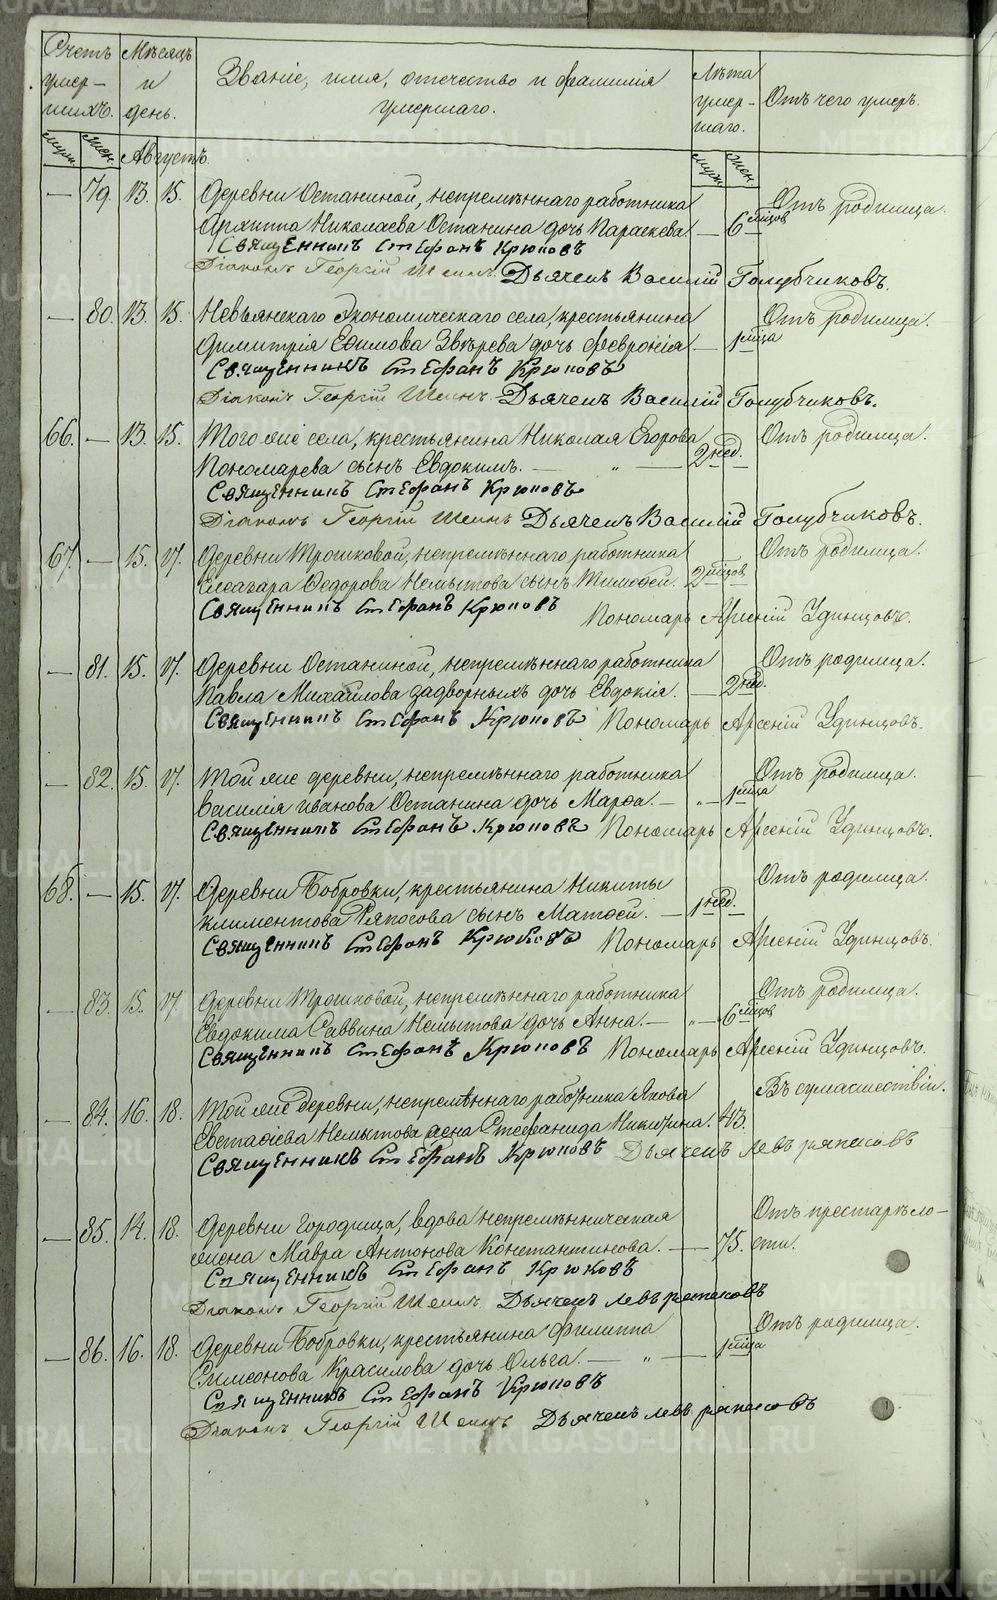 Счетъ умер-шихъ. Мѣсяцъ и день. Званіе, имя, отечество и фамилія умершаго. Лѣта умер-шаго. Отъ чего умеръ.
муж. жен. Августъ. муж. жен.
— 79. 13. 15. Деревни Останиной, непремѣннаго работника Отъ родимца.
Архиппа Николаева Останина дочь Параскева — 6 мѣцов
Священникъ Стефанъ Крюковъ
Діаконъ Георгій Шеинъ. Дьячекъ Василій Голубчиковъ.
— 80. 13. 15. Невьянскаго Экономическаго села, крестьянина Отъ родимца.
Димитрія Ефимова Звѣрева дочь Февронія. — 1 мѣца
Священникъ Стефанъ Крюковъ
Діаконъ Георгій Шеинъ. Дьячекъ Василій Голубчиковъ.
66. — 13. 15. Того же села, крестьянина Николая Егорова Отъ родимца.
Пономарева сынъ Евдокимъ. — „ — 2 нед.
Священникъ Стефанъ Крюковъ
Діаконъ Георгій Шеинъ Дьячекъ Василій Голубчиковъ.
67. — 15. 17. Деревни Трошковой, непремѣннаго работника Отъ родимца.
Елеазара Ѳедорова Немытова сынъ Тимоѳей. 2 мѣцов
Священникъ Стефанъ Крюковъ Пономарь Арсеній Удинцовъ.
— 81. 15. 17. Деревни Останиной, непремѣннаго работника Отъ родимца.
Павла Михайлова Задворныхъ дочь Евдокія. — 2 нед.
Священникъ Стефанъ Крюковъ Пономарь Арсеній Удинцовъ.
— 82. 15. 17. Той же деревни, непремѣннаго работника Отъ родимца.
Василія Иванова Останина дочь Марѳа. — „ — 1 мѣца
Священникъ Стефанъ Крюковъ Пономарь Арсеній Удинцовъ.
68. — 15. 17. Деревни Бобровки, крестьянина Никиты Отъ родимца.
Климентова Ряпосова сынъ Матѳей. — 1 нед. —
Священникъ Стефанъ Крюковъ Пономарь Арсеній Удинцовъ.
— 83. 15. 17. Деревни Трошковой, непремѣннаго работника Отъ родимца.
Евдокима Саввина Немытова дочь Анна. — „ — 6 мѣцов
Священникъ Стефанъ Крюковъ Пономарь Арсеній Удинцовъ.
— 84. 16. 18. Той же деревни, непремѣннаго работника Якова Въ сумасшествіи.
Евстаѳіева Немытова жена Стефанида Никитина. 43.
Священникъ Стефанъ Крюковъ Дьячекъ Левъ Ряпосовъ
— 85. 14. 18. Деревни Городища, вдова непремѣнническая Отъ престарѣло-
жена Мавра Антонова Константинова. — 75. сти.
Священникъ Стефанъ Крюковъ
Діаконъ Георгій Шеинъ. Дьячекъ Левъ Ряпосовъ
— 86. 16. 18. Деревни Бобровки, крестьянина Филиппа Отъ родимца.
Симеонова Красилова дочь Ольга. — „ — 1 мѣца
Священникъ Стефанъ Крюковъ
Діаконъ Георгій Шеинъ Дьячекъ Левъ Ряпосовъ
METRIKI.GASO-URAL.RU